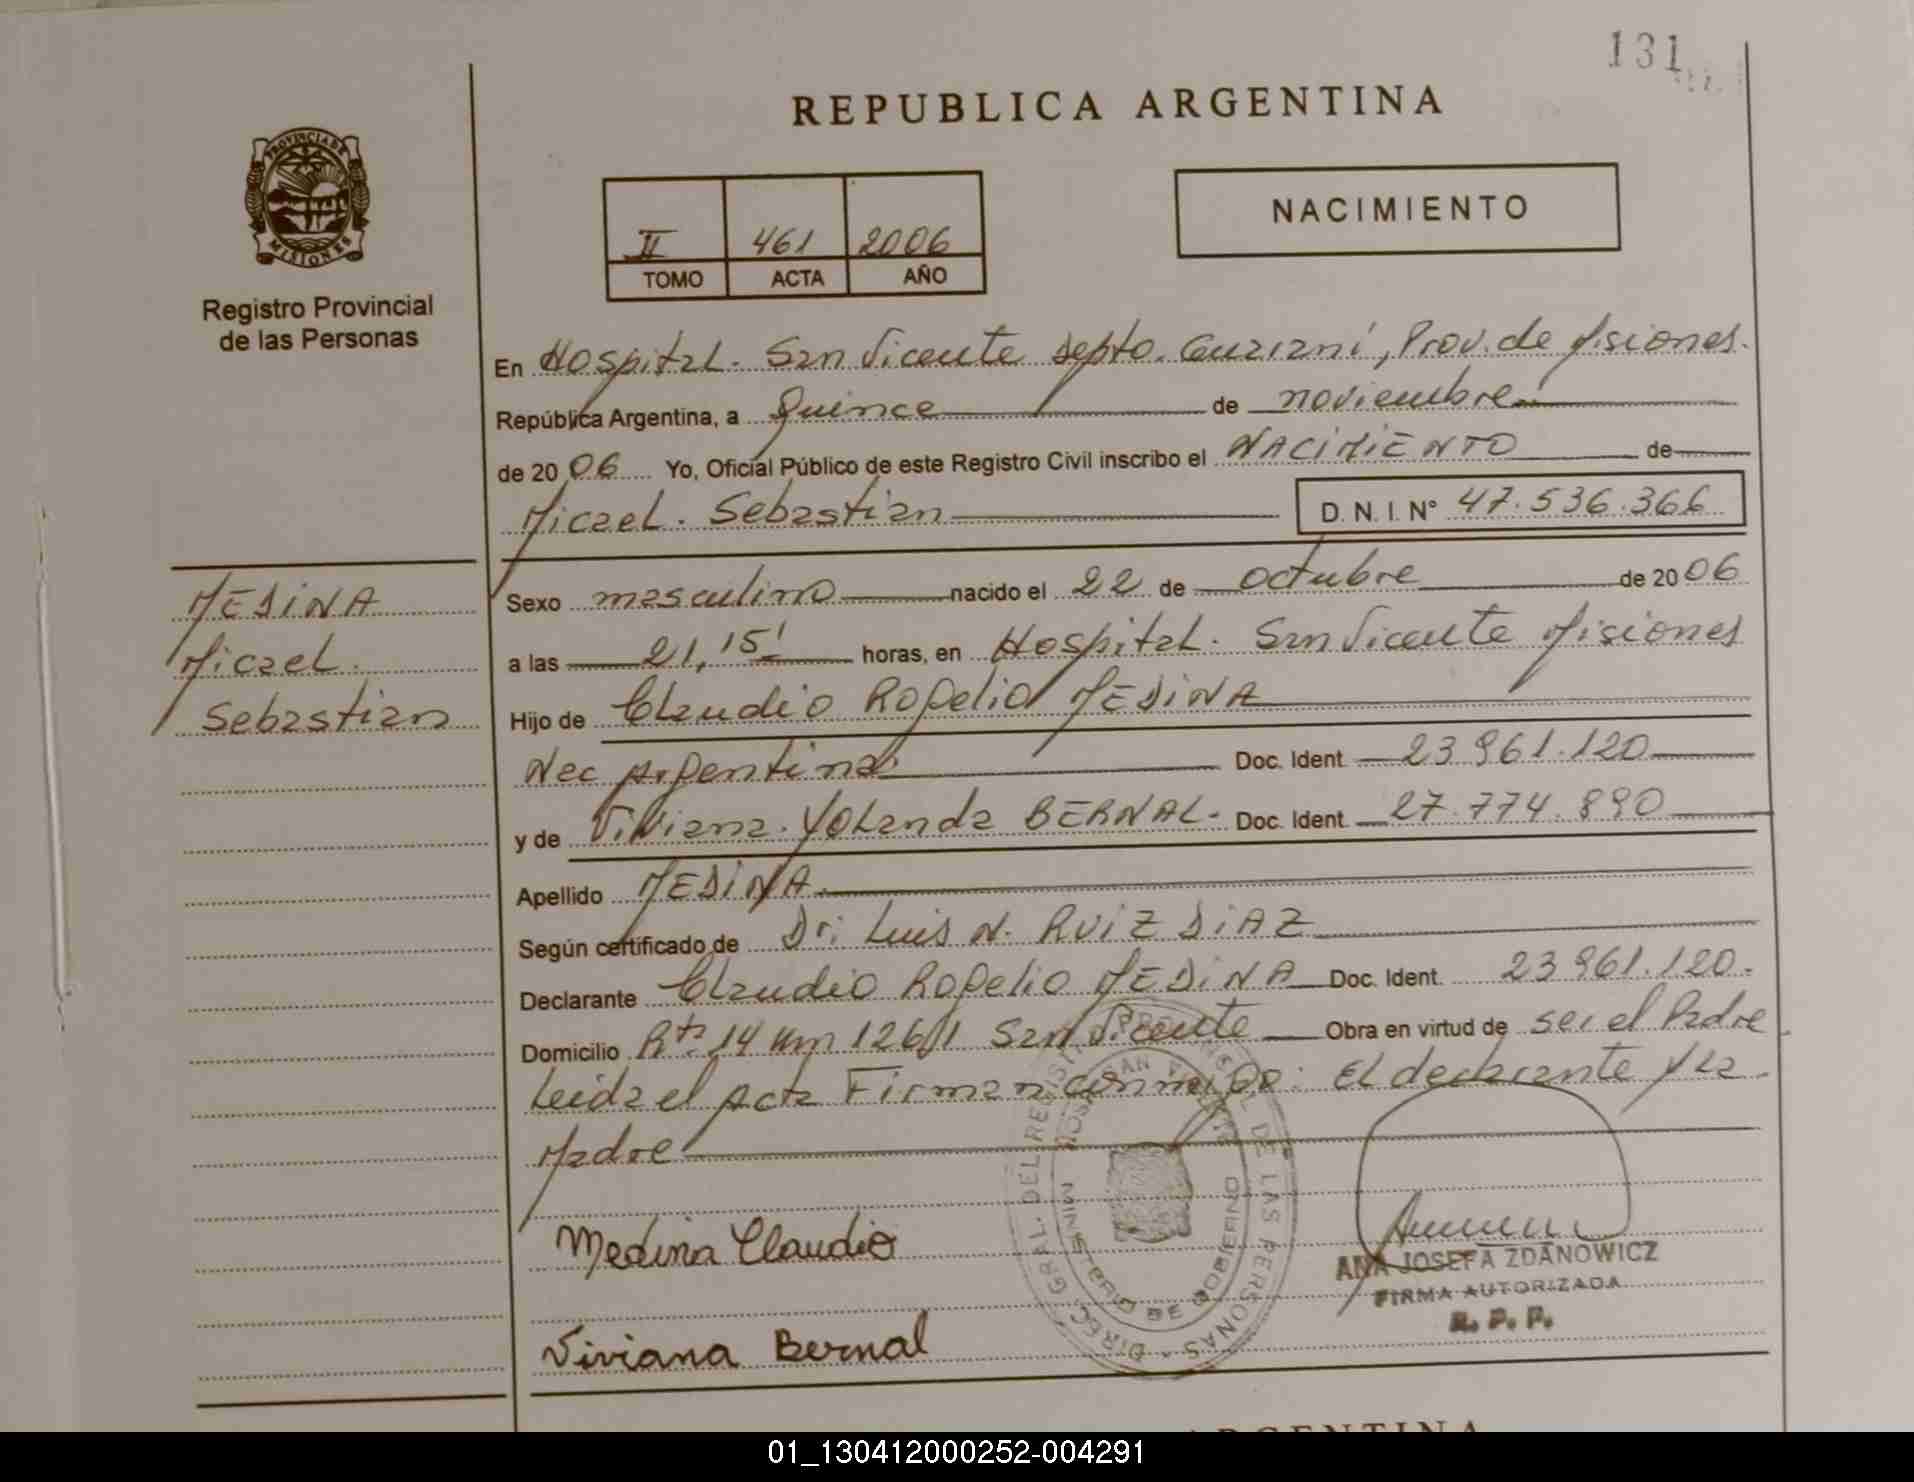 131
REPUBLICA ARGENTINA
PROVINCIA DE
MISIONES
Registro Provincial
de las Personas
II 461 2006
TOMO ACTA AÑO
NACIMIENTO
En Hospital. San Vicente Depto. Guaraní, Prov. de Misiones.
República Argentina, a Quince de noviembre
de 2006 Yo, Oficial Público de este Registro Civil inscribo el NACIMIENTO de
Micael. Sebastian D. N. I. Nº 47.536.366
MEDINA
Micael.
Sebastian
Sexo masculino nacido el 22 de octubre de 2006
a las 21,15' horas, en Hospital. San Vicente Misiones
Hijo de Claudio Rogelio MEDINA
Nac Argentina Doc. Ident 23 961.120
y de Viviana. Yolanda BERNAL. Doc. Ident. 27.774.890
Apellido MEDINA
Según certificado de Dr: Luis N. RUIZ DIAZ
Declarante Claudio Rogelio MEDINA Doc. Ident. 23 961.120.
Domicilio Rta 14 Km 1261 San Vicente Obra en virtud de ser el Padre
Leida el Acta Firman conmigo: El declarante y la
Madre
Medina Claudio
Viviana Bernal
DIREC. GRAL. DEL REGISTRO PROVINCIAL DE LAS PERSONAS
HOSP. SAN VICENTE
MINISTERIO DE GOBIERNO
ANA JOSEFA ZDANOWICZ
FIRMA AUTORIZADA
R. P. P.
ARGENTINA
01_130412000252-004291